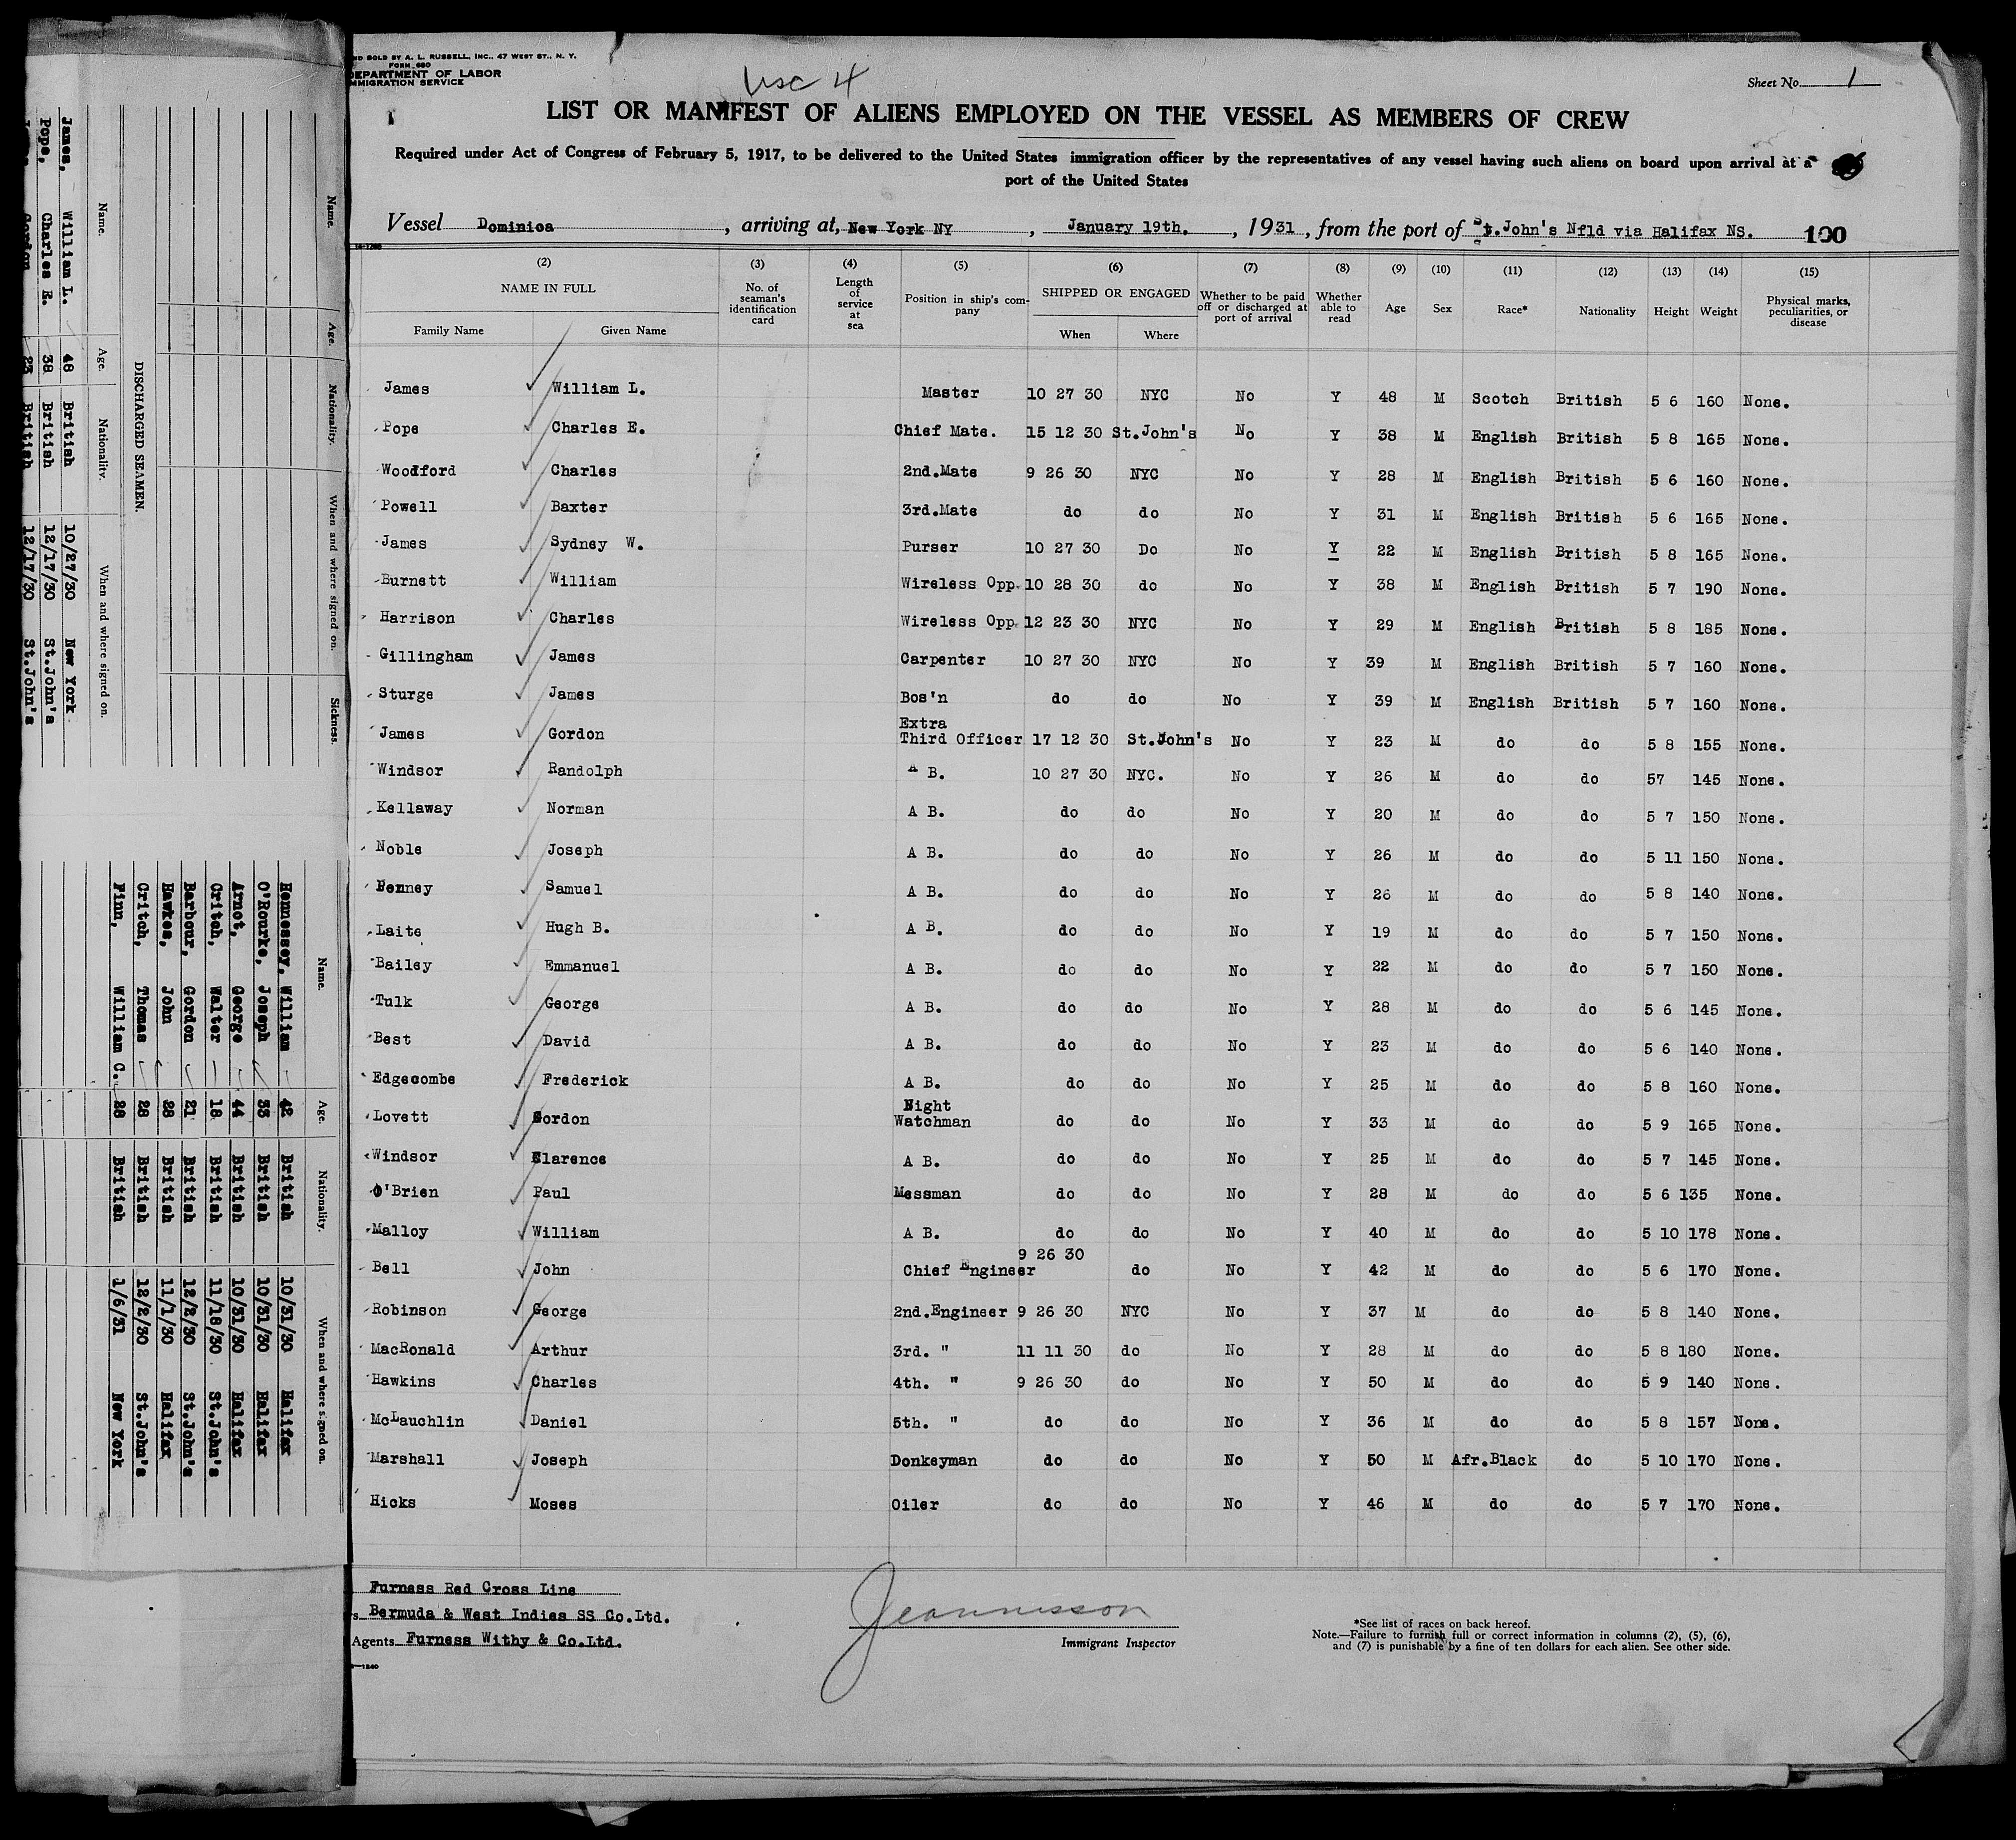 ND SOLD BY A. L. RUSSELL, INC., 47 WEST ST., N. Y.
FORM 680
DEPARTMENT OF LABOR
IMMIGRATION SERVICE
usc 4
Sheet No. 1
LIST OR MANIFEST OF ALIENS EMPLOYED ON THE VESSEL AS MEMBERS OF CREW
Required under Act of Congress of February 5, 1917, to be delivered to the United States immigration officer by the representatives of any vessel having such aliens on board upon arrival at a
port of the United States
Vessel Dominica, arriving at, New York NY, January 19th., 1931, from the port of St.John's Nfld via Halifax NS. 100
(2) (3) (4) (5) (6) (7) (8) (9) (10) (11) (12) (13) (14) (15)
NAME IN FULL No. of seaman's identification card Length of service at sea Position in ship's company SHIPPED OR ENGAGED Whether to be paid off or discharged at port of arrival Whether able to read Age Sex Race* Nationality Height Weight Physical marks, peculiarities, or disease
Family Name Given Name When Where
James William L. Master 10 27 30 NYC No Y 48 M Scotch British 5 6 160 None.
Pope Charles E. Chief Mate. 15 12 30 St.John's No Y 38 M English British 5 8 165 None.
Woodford Charles 2nd.Mate 9 26 30 NYC No Y 28 M English British 5 6 160 None.
Powell Baxter 3rd.Mate do do No Y 31 M English British 5 6 165 None.
James Sydney W. Purser 10 27 30 Do No Y 22 M English British 5 8 165 None.
Burnett William Wireless Opp. 10 28 30 do No Y 38 M English British 5 7 190 None.
Harrison Charles Wireless Opp. 12 23 30 NYC No Y 29 M English British 5 8 185 None.
Gillingham James Carpenter 10 27 30 NYC No Y 39 M English British 5 7 160 None.
Sturge James Bos'n do do No Y 39 M English British 5 7 160 None.
James Gordon Extra Third Officer 17 12 30 St.John's No Y 23 M do do 5 8 155 None.
Windsor Randolph A B. 10 27 30 NYC. No Y 26 M do do 57 145 None.
Kellaway Norman A B. do do No Y 20 M do do 5 7 150 None.
Noble Joseph A B. do do No Y 26 M do do 5 11 150 None.
Fenney Samuel A B. do do No Y 26 M do do 5 8 140 None.
Laite Hugh B. A B. do do No Y 19 M do do 5 7 150 None.
Bailey Emmanuel A B. do do No Y 22 M do do 5 7 150 None.
Tulk George A B. do do No Y 28 M do do 5 6 145 None.
Best David A B. do do No Y 23 M do do 5 6 140 None.
Edgecombe Frederick A B. do do No Y 25 M do do 5 8 160 None.
Lovett Gordon Night Watchman do do No Y 33 M do do 5 9 165 None.
Windsor Clarence A B. do do No Y 25 M do do 5 7 145 None.
O'Brien Paul Messman do do No Y 28 M do do 5 6 135 None.
Malloy William A B. do do No Y 40 M do do 5 10 178 None.
Bell John Chief Engineer 9 26 30 do No Y 42 M do do 5 6 170 None.
Robinson George 2nd.Engineer 9 26 30 NYC No Y 37 M do do 5 8 140 None.
MacRonald Arthur 3rd. " 11 11 30 do No Y 28 M do do 5 8 180 None.
Hawkins Charles 4th. " 9 26 30 do No Y 50 M do do 5 9 140 None.
McLauchlin Daniel 5th. " do do No Y 36 M do do 5 8 157 None.
Marshall Joseph Donkeyman do do No Y 50 M Afr.Black do 5 10 170 None.
Hicks Moses Oiler do do No Y 46 M do do 5 7 170 None.
Furness Red Cross Line
rs Bermuda & West Indies SS Co.Ltd.
Agents Furness Withy & Co.Ltd.
Jeannisson
Immigrant Inspector
*See list of races on back hereof.
Note.—Failure to furnish full or correct information in columns (2), (5), (6),
and (7) is punishable by a fine of ten dollars for each alien. See other side.
Name. Age. Nationality. When and where signed on. Sickness.
DISCHARGED SEAMEN.
Name. Age. Nationality. When and where signed on.
James, William L. 48 British 10/27/30 New York
Pope, Charles E. 38 British 12/17/30 St.John's
Gordon 23 British 12/17/30 St.John's
Name. Age. Nationality. When and where signed on.
Hennessey, William 42 British 10/31/30 Halifax
O'Rourke, Joseph 33 British 10/31/30 Halifax
Arnot, George 44 British 10/31/30 Halifax
Critch, Walter 18 British 11/18/30 St.John's
Barbour, Gordon 21 British 12/2/30 St.John's
Hawkes, John 28 British 11/1/30 Halifax
Critch, Thomas 28 British 12/2/30 St.John's
Finn, William C. 28 British 1/6/31 New York